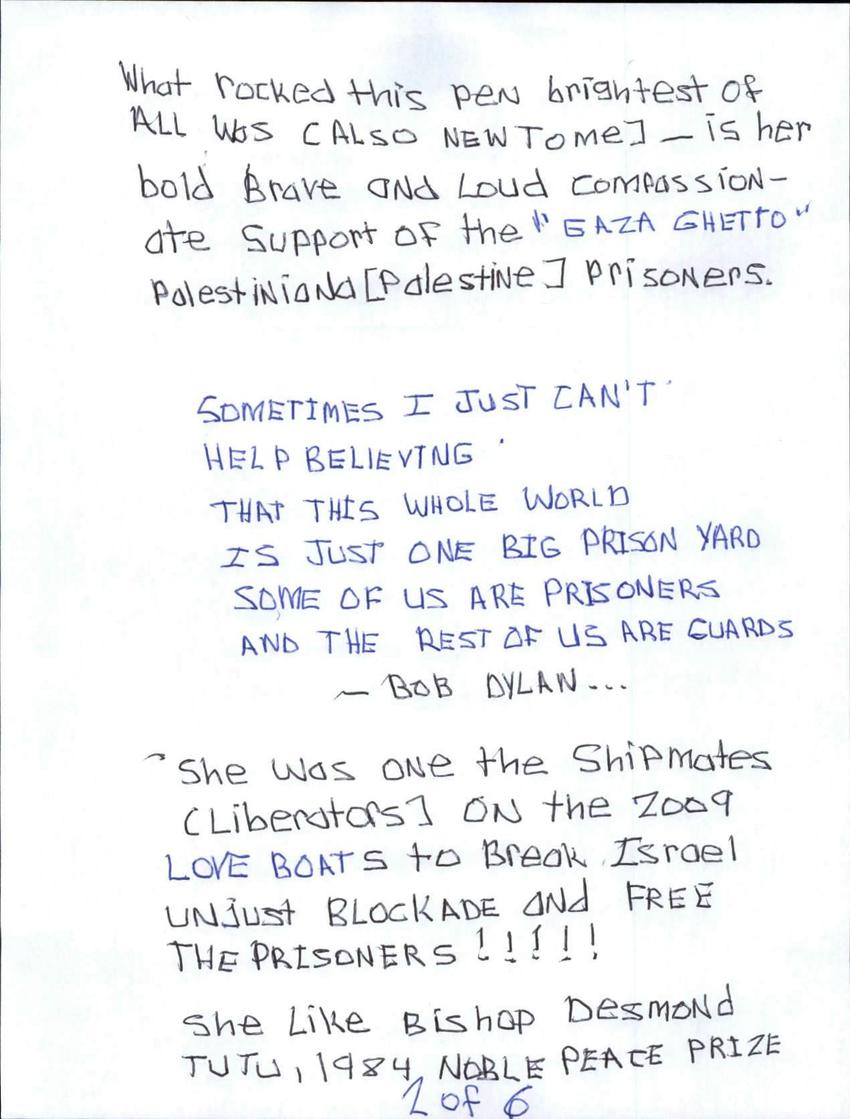 What rocked this pen brightest of
ALL WAS [ALSO NEW TO me] — is her
bold Brave AND LOUD compassion-
ate Support of the "GAZA GHETTO"
PalestiNiaNd [PalestiNe] PrisoNers.
SOMETIMES I JUST CAN'T
HELP BELIEVING
THAT THIS WHOLE WORLD
IS JUST ONE BIG PRISON YARD
SOME OF US ARE PRISONERS
AND THE REST OF US ARE GUARDS
— BOB DYLAN...
She was ONe the ShipMates
[Liberators] ON the 2009
LOVE BOATS to Break Israel
UNjust BLOCKADE aNd FREE
THE PRISONERS !!!!!
She Like Bishop DesmoNd
TUTU, 1984 NOBLE PEACE PRIZE
2 of 6